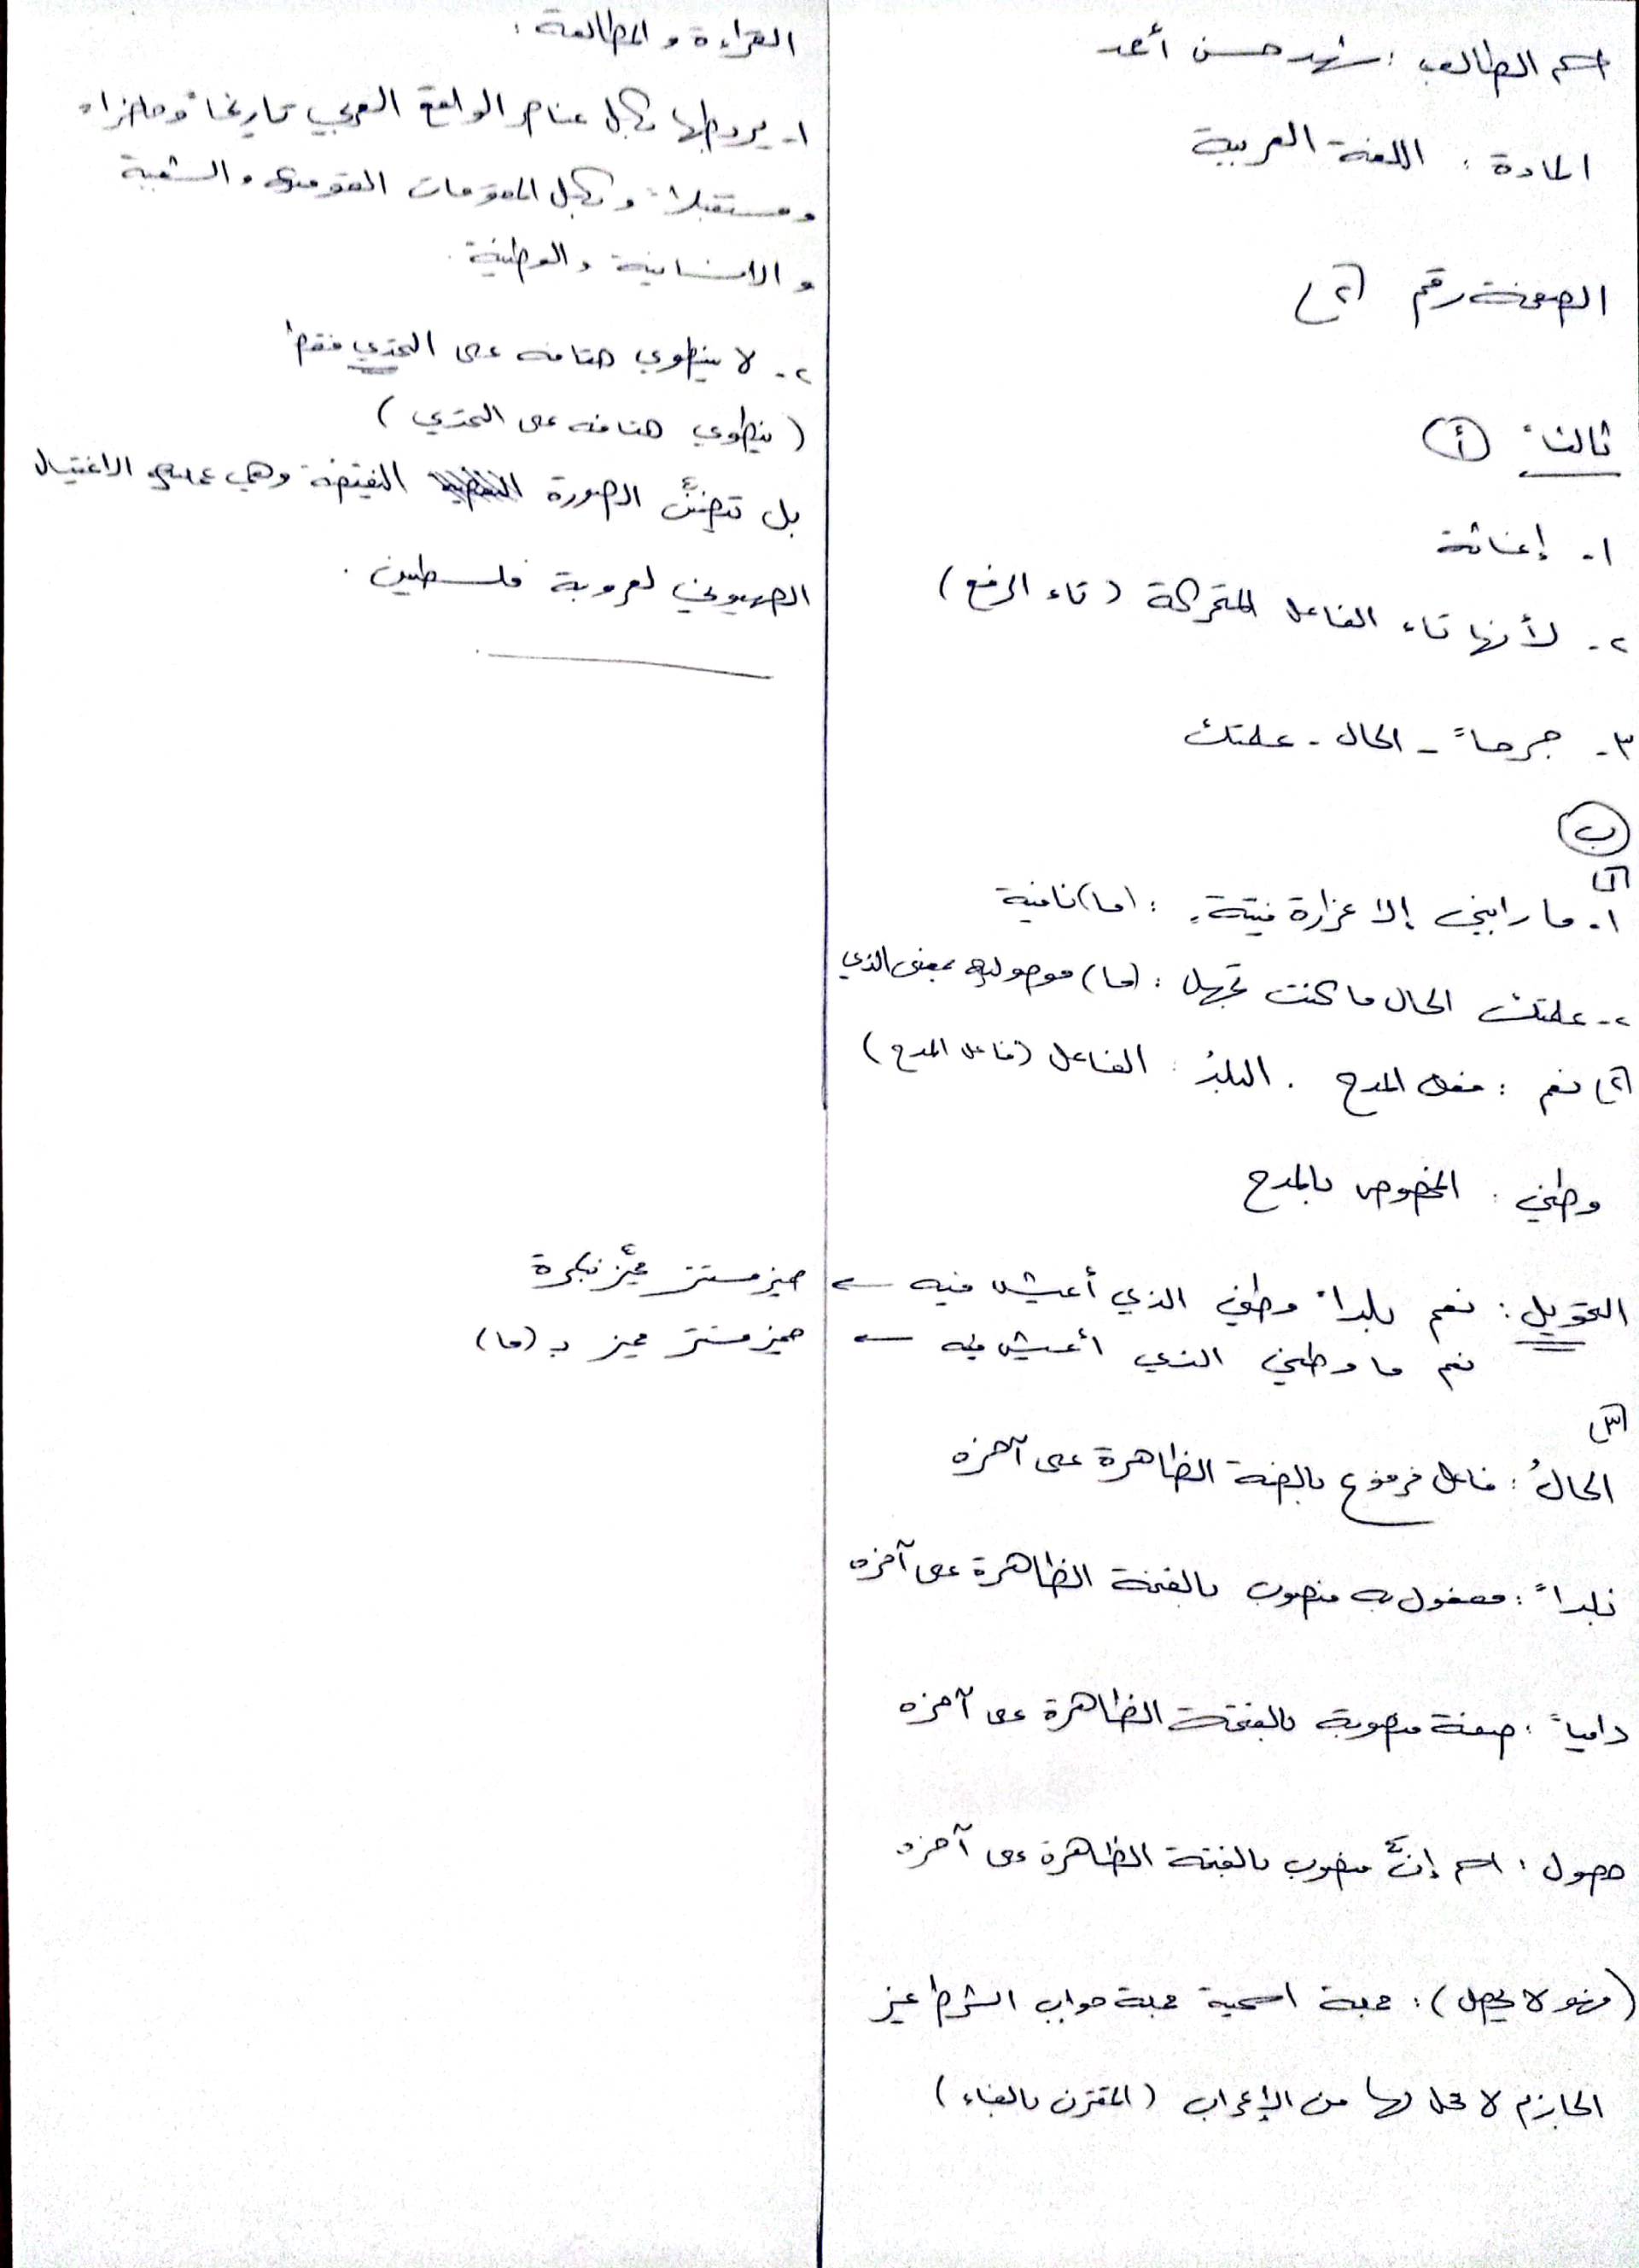 اسم الطالب : شهد حسن أسعد
المادة : اللغة العربية
الصفحة رقم (٢)
ثالثاً (أ)
١- إغاثة
٢- لأنها تاء الفاعل المتحركة (تاء الرفع)
٣- جرحاً - الحال - علمتك
(ب)
(١
١- ما رابني إلا غزارة فيتة : (ما) نافية
٢- علمتك الحال ما كنت تجهل : (ما) موصولية بمعنى الذي
(٢ نعم : فعل المدح . البلدُ : الفاعل (فاعل المدح)
وطني : المخصوص بالمدح
التحويل : نعم بلداً وطني الذي أعيش فيه ← ضمير مستتر مميَّز نكرة
نعم ما وطني الذي أعيش فيه ← ضمير مستتر مميز بـ (ما)
(٣
الحالُ : فاعل مرفوع بالضمة الظاهرة على آخره
بلداً : مفعول به منصوب بالفتحة الظاهرة على آخره
دامياً : صفة منصوبة بالفتحة الظاهرة على آخره
حصول : اسم إنَّ منصوب بالفتحة الظاهرة على آخره
(فهو لا يحصل) : جملة اسمية جملة جواب الشرط غير
الجازم لا محل لها من الإعراب (المقترن بالفاء)
القراءة و المطالعة :
١- يربطها بكل عناصر الواقع العربي تاريخاً وحاضراً
و مستقبلاً و بكل المقومات القومية و الشعبية
و الانسانية و الوطنية .
٢- لا ينطوي هتافه على التحدي فقط
(ينطوي هتافه على التحدي)
بل تضمَّن الصورة النقيضة وهي عملية الاغتيال
الصهيوني لعروبة فلسطين .